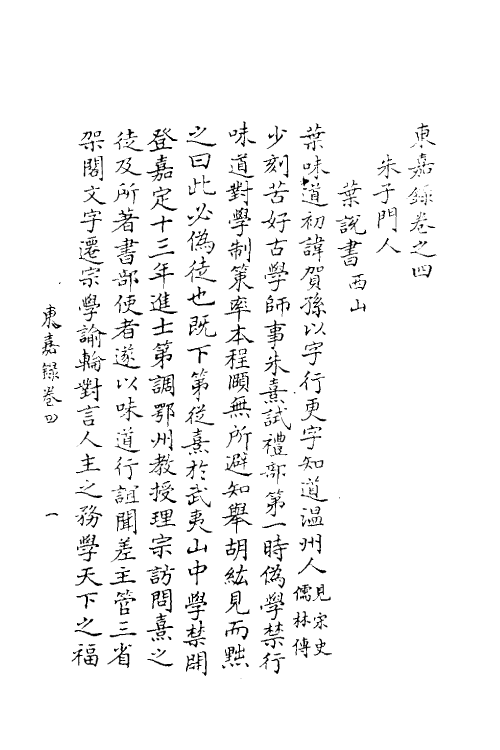 東嘉錄卷之四
朱子門人
葉說書西山
葉味道初諱賀孫以字行更字知道温州人見宋史儒林傳
少刻苦好古學師事朱熹試禮部第一時偽學禁行
味道對學制策率本程頤無所避知舉胡紘見而黜
之曰此必偽徒也既下第從熹於武夷山中學禁開
登嘉定十三年進士第調鄂州教授理宗訪問熹之
徒及所著書部使者遂以味道行誼聞差主管三省
架閣文字遷宗學諭輪對言人主之務學天下之福
東嘉錄卷四
一